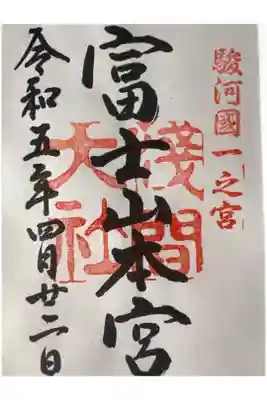 駿河國一之宮
富士山本宮
淺間
大社
令和五年四月廿二日